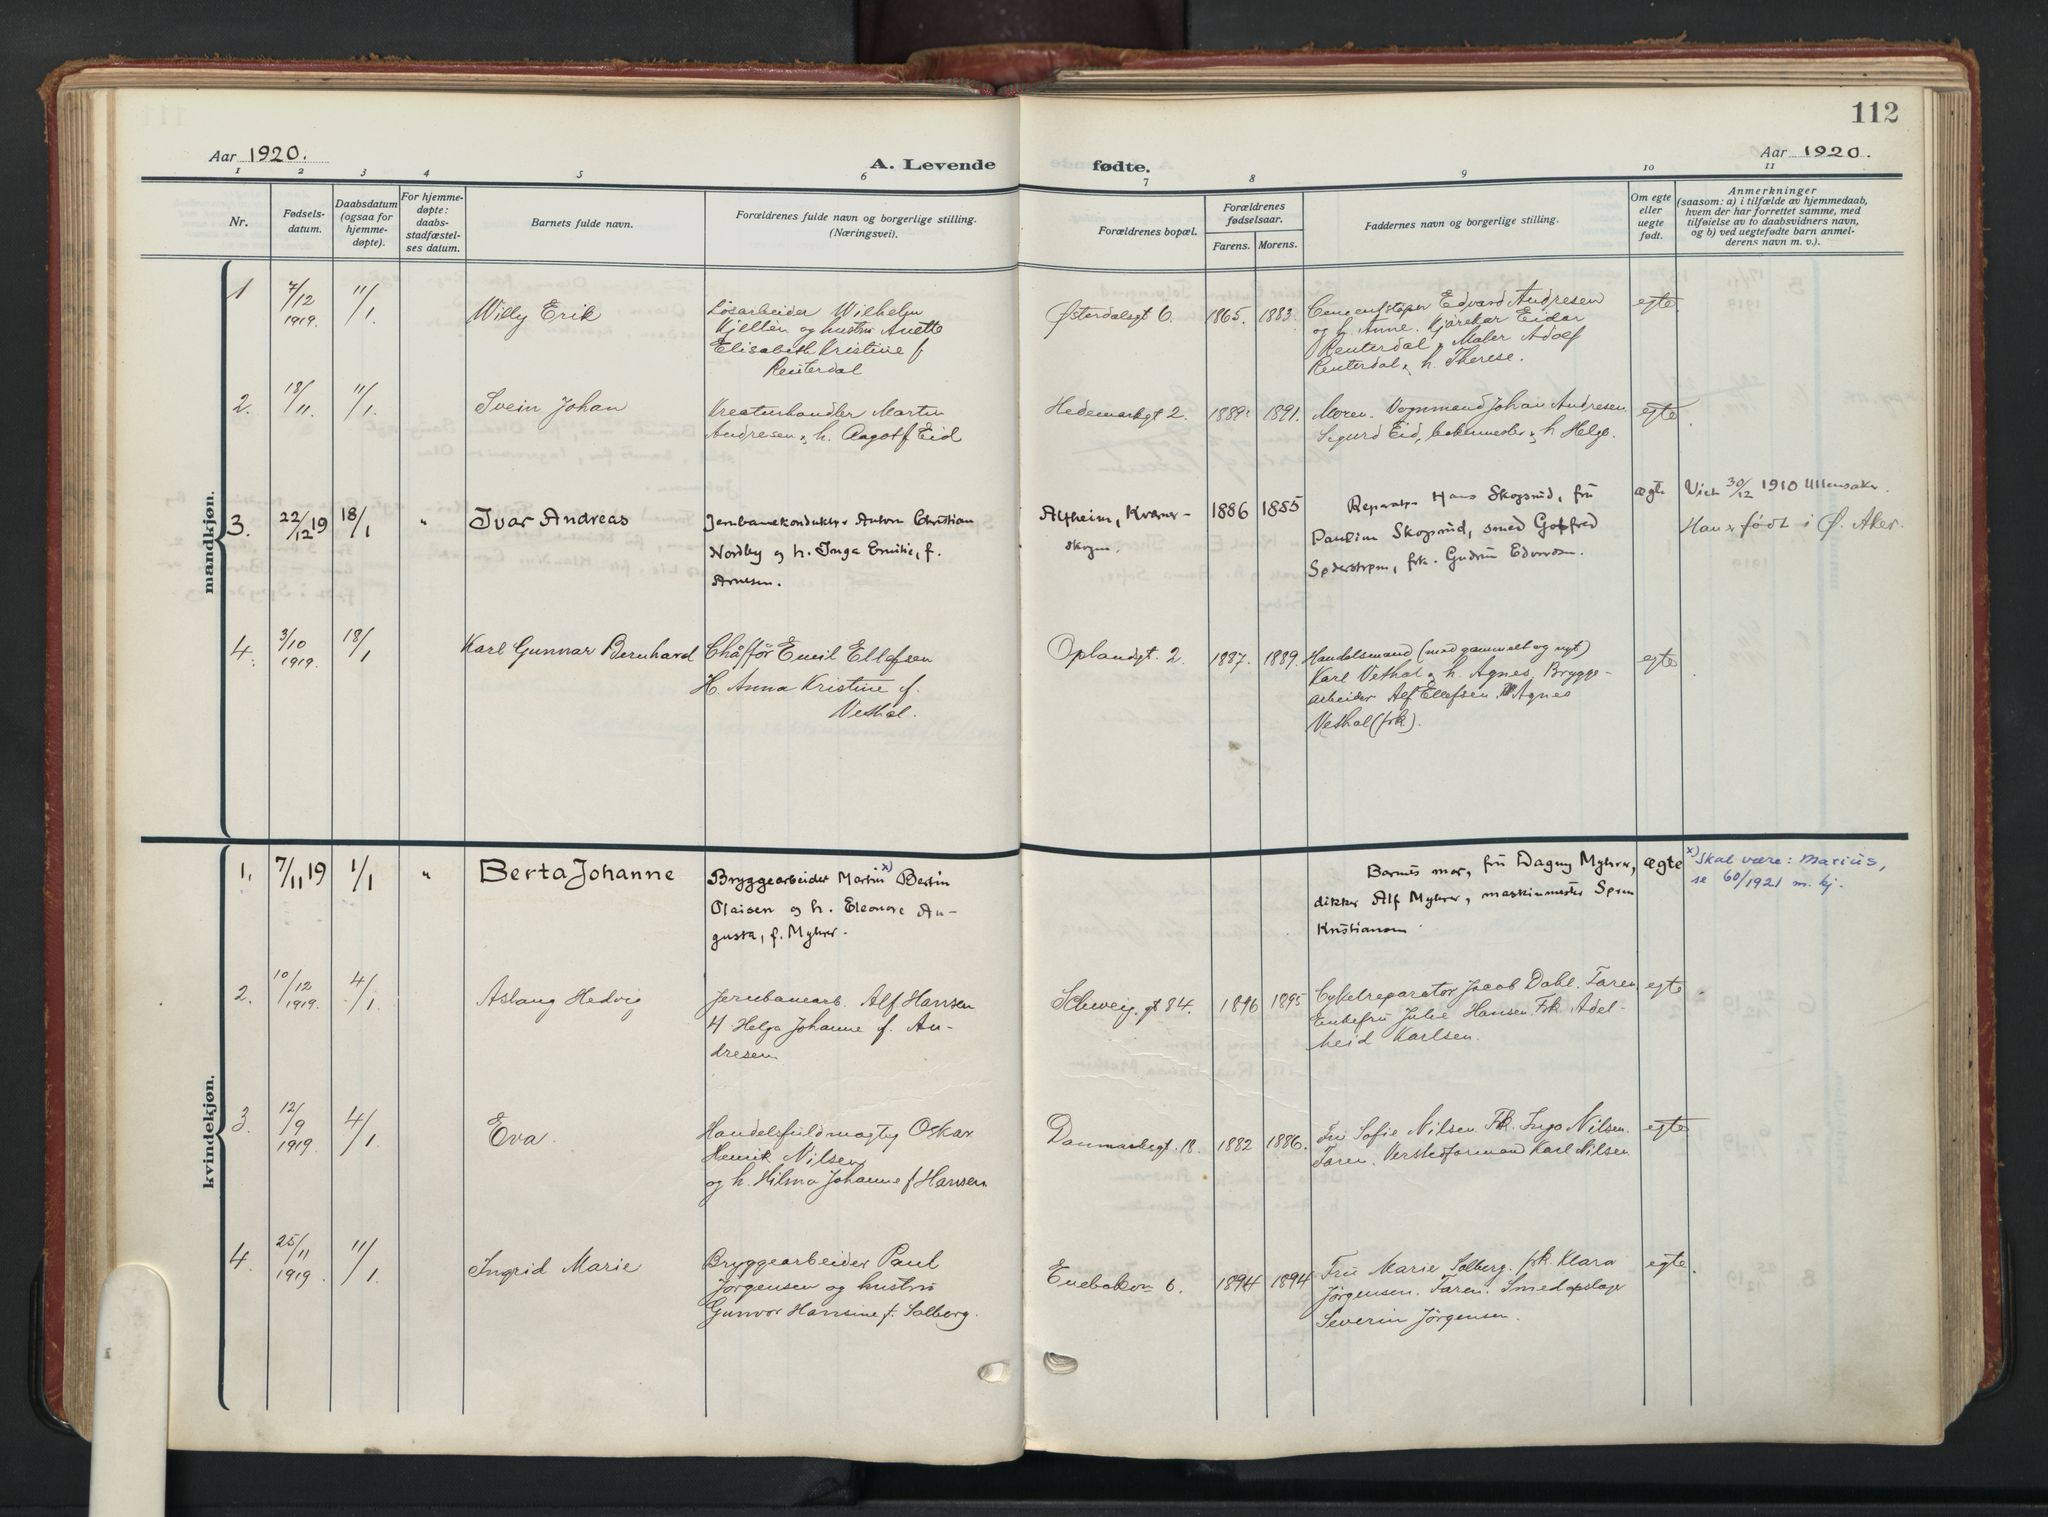 112
Aar 1920.
A. Levende fødte.
Aar 1920.
1 2 3 4 5 6 7 8 9 10 11
Nr.
Fødsels-
datum.
Daabsdatum
(ogsaa for
hjemme-
døpte).
For hjemme-
døpte:
daabs-
stadfæstel-
ses datum.
Barnets fulde navn.
Forældrenes fulde navn og borgerlige stilling.
(Næringsvei).
Forældrenes bopæl.
Forældrenes
fødselsaar.
Farens. Morens.
Faddernes navn og borgerlige stilling.
Om egte
eller
uegte
født.
Anmerkninger
(saasom: a) i tilfælde av hjemmedaab,
hvem der har forrettet samme, med
tilføielse av to daabsvidners navn,
og b) ved uegtefødte barn anmel-
derens navn m. v.).
mandkjøn.
1
7/12
1919.
11/1
Willy Erik
Løsarbeider Wilhelm
Kjellen og hustru Anette
Elisabeth Kristine f
Reuterdal
Østerdalsgt 6.
1865. 1883.
Cementstøper Edvard Andresen
og h. Anne. Kjørekar Eidar
Reuterdal, Maler Adolf
Reuterdal, h. Therese.
egte
2.
18/11.
11/1
Svein Johan
Kreaturhandler Martin
Andresen, h. Aagot f Eid
Hedemarksgt 2.
1889. 1891.
Moren. Vognmand Johan Andresen
Sigurd Eid, bakermester, h Helga.
egte
3.
22/12 19
18/1
"
Ivar Andreas
Jernbanekonduktør Anton Christian
Nordby og h. Inga Emilie, f.
Arnesen.
Altheim, Kværner-
skogen.
1886 1885
Reparatør Hans Skogsrud, fru
Pauline Skogsrud, smed Gotfred
Søderstrøm, frk. Gudrun Edvardsen.
ægte
Viet 30/12 1910 Ullensaker.
Han er født i Ø. Aker.
4.
3/10
1919.
18/1
Karl Gunnar Bernhard
Chåffør Emil Ellefsen
H. Anna Kristine f.
Vethal.
Oplandgt. 2.
1887. 1889.
Handelsmand (med gammelt og nyt)
Karl Vethal, h. Agnes, Brygge-
arbeider Alf Ellefsen. Agnes
Vethal (frk).
egte
kvindekjøn.
1.
7/11 19
1/1
"
Berta Johanne
Bryggearbeider Martin x) Bertin
Olaisen og h. Eleonore Au-
gusta, f. Myhrer.
Barnets mor, fru Dagny Myhrer,
dikker Alf Myhrer, maskinmester Søren
Kristiansen
ægte
x) Skal være: Marius,
se 60/1921 m. kj.
2.
10/12
1919.
4/1
Aslaug Hedvig
Jernbanearb. Alf Hansen
H. Helga Johanne f. An-
dresen
Schweig.gt 84.
1896 1895
Cykelreparatør Jacob Dahl. Faren
Enkefru Julie Hansen. Frk Adel-
heid Karlsen.
egte
3.
12/9
1919.
4/1
Eva.
Handelsfuldmægtig Oskar
Henrik Nilsen
og h. Hilma Johanne f Hansen
Danmarksgt. 18.
1882 1886.
Fru Sofie Nilsen. Frk. Inga Nilsen.
Faren. Verksformand Karl Nilsen
egte
4.
25/11
1919.
11/1
Ingrid Marie
Bryggearbeider Paul
Jörgensen og hustru
Gunvor Hansine f. Solberg.
Enebakvn 6.
1894 1894
Fru Marie Solberg. frk. Klara
Jörgensen. Faren. Smed
Severin Jörgensen.
egte.